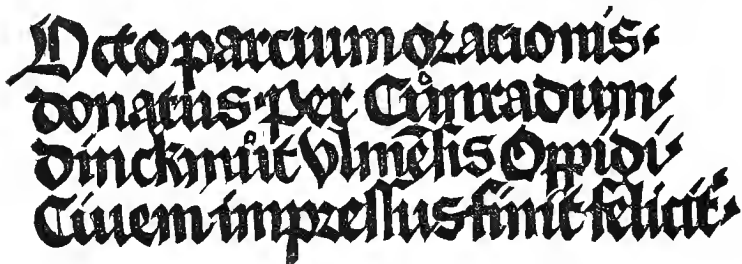 Octo parcium oracionis·
donatus· Per Cůnradum·
dinckmůt Vlmēsis Oppidi·
Ciuem impressus finit felicit᷑·